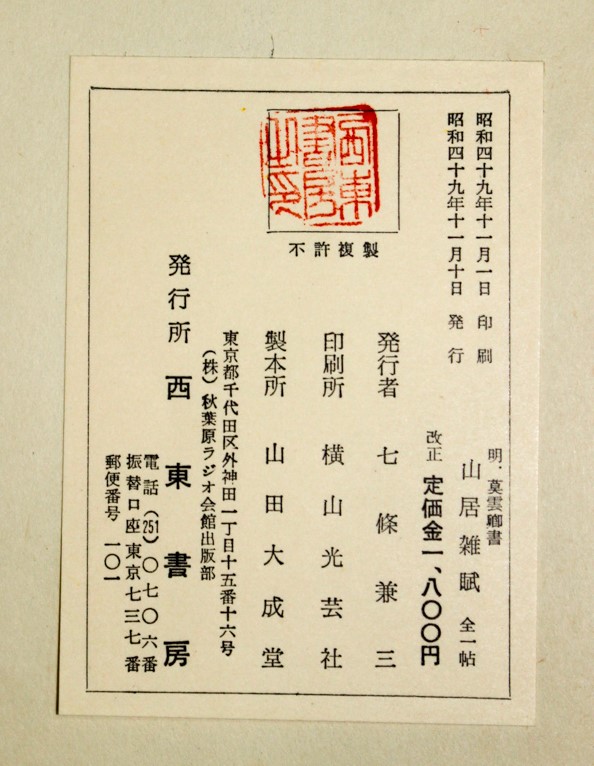 昭和四十九年十一月一日 印刷
昭和四十九年十一月十日 発行
明・莫雲卿書
山居雑賦 全一帖
改正 定価金一、八〇〇円
西東
書房
之印
不許複製
発行者 七條兼三
印刷所 横山光芸社
製本所 山田大成堂
東京都千代田区外神田一丁目十五番十六号
（株）秋葉原ラジオ会館出版部
発行所 西東書房
電話（251）〇七〇六番
振替口座東京七三七番
郵便番号 一〇一